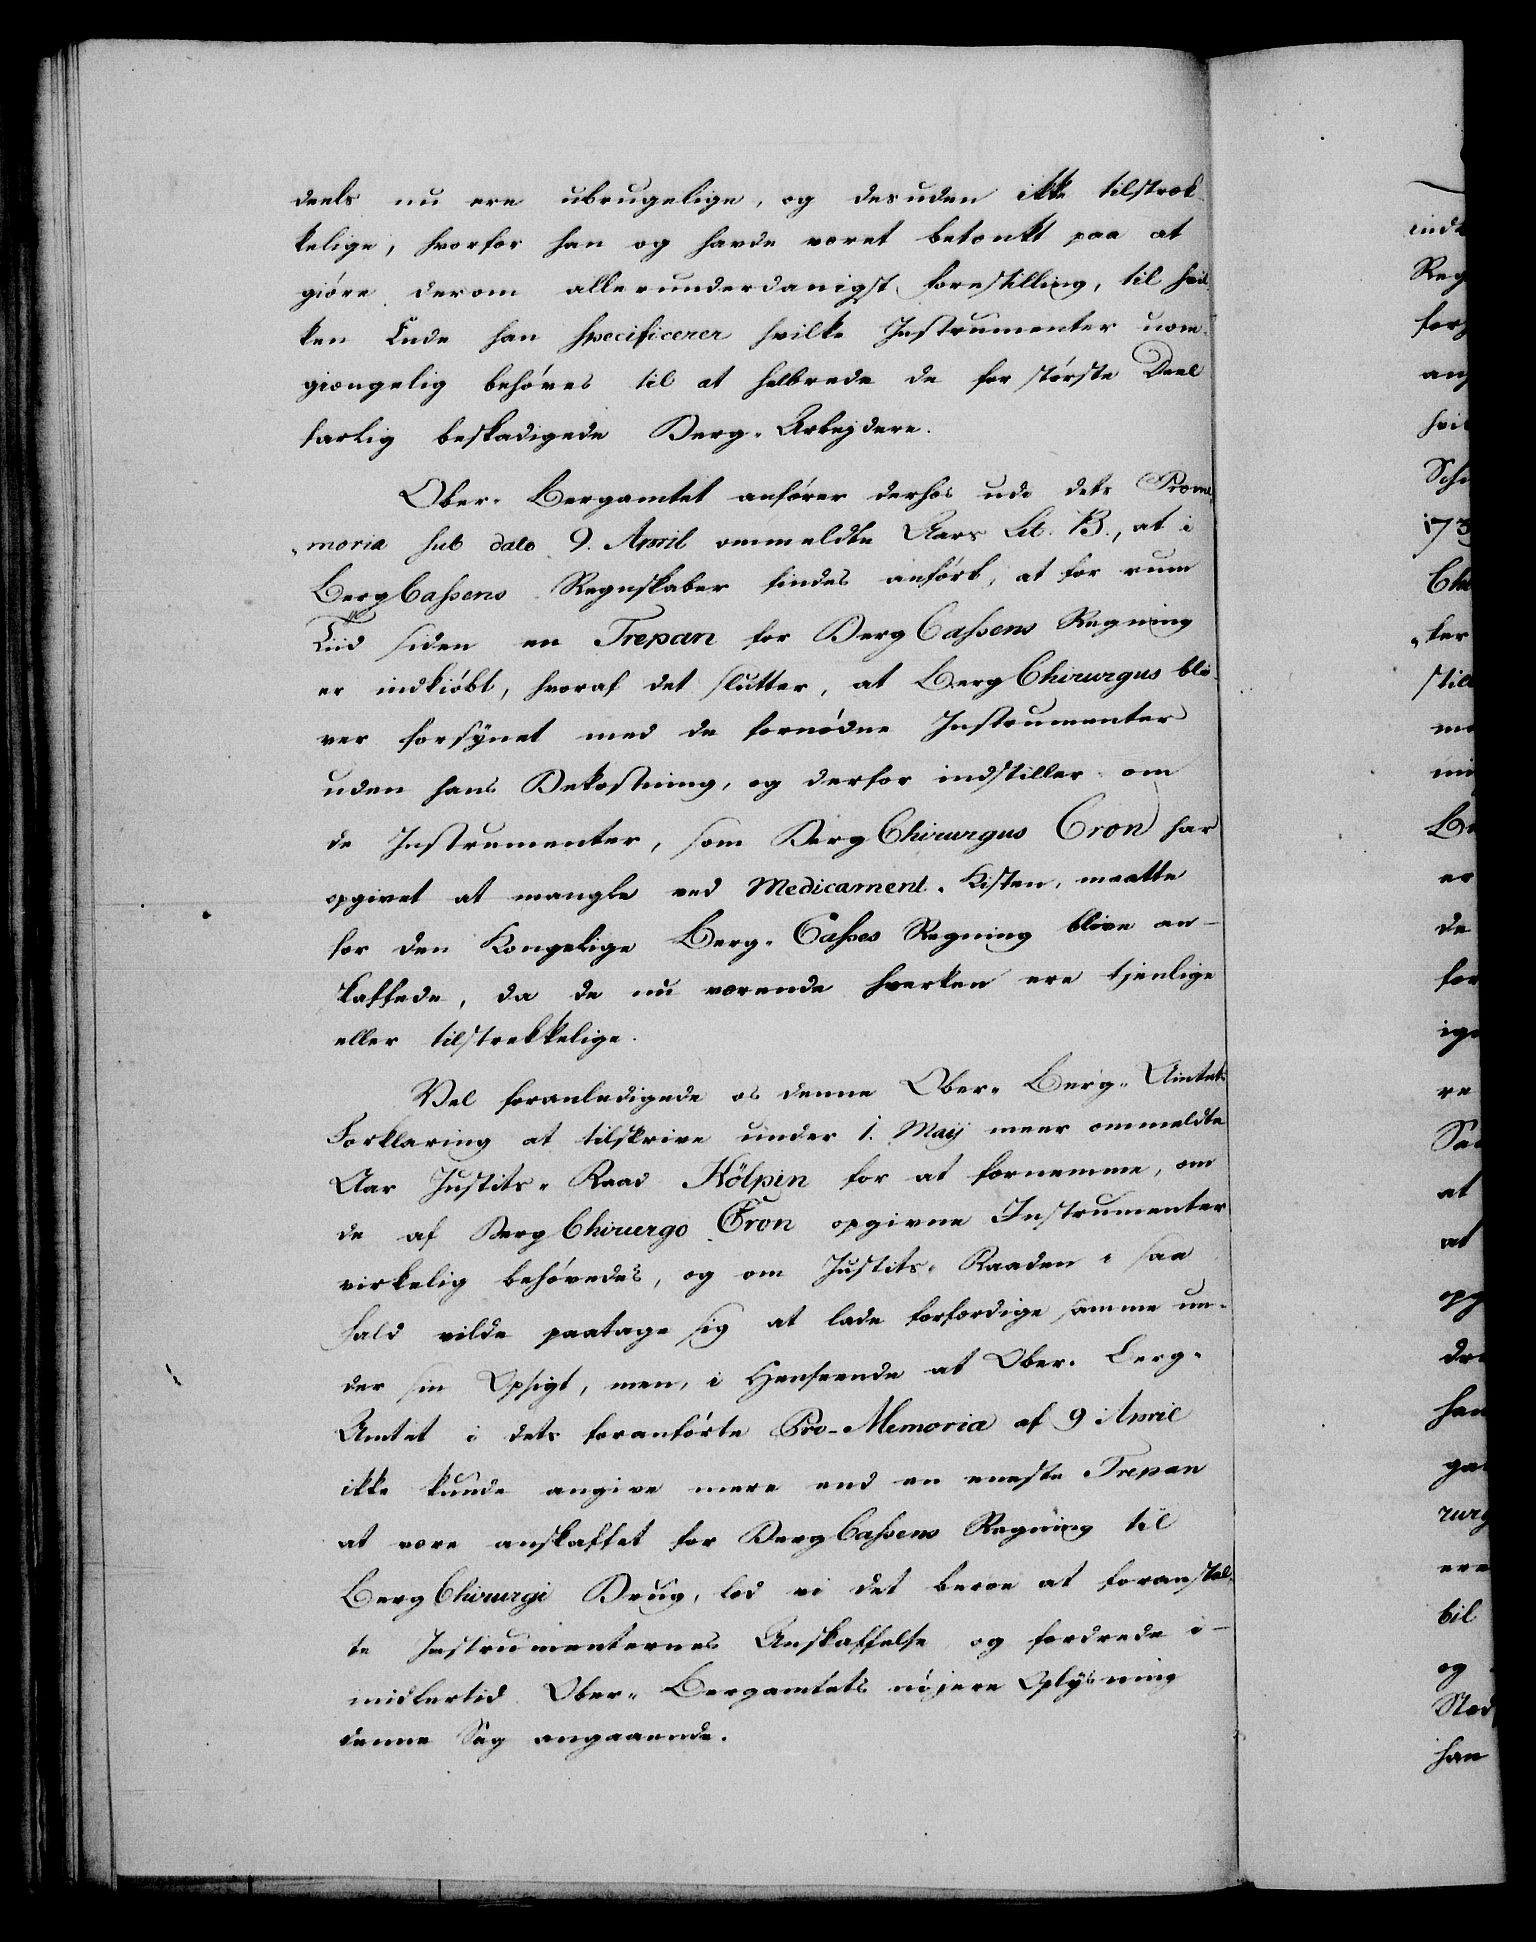 deels nu ere ubrugelige, og desuden ikke tilstræk-
kelige, hvorfor han og havde været betænkt paa at
giöre derom allerunderdanigst forestilling, til hvil-
ken Ende han specificerer hvilke Instrumenter uom-
giængelig behöves til at helbrede de for störste Deel
farlig beskadigede Berg-Arbejdere.
Ober-Bergamtet anförer derhos udi dets Prome-
moria sub dato 9. April ommeldte Aars Lit. B., at i
BergCassens Regnskaber findes anfört, at for rum
Tiid siden en Trepan for BergCassens Regning
er indkiöbt, hvoraf det slutter, at BergChirurgus bli-
ver forsÿnet med de fornödne Instrumenter
uden hans Bekostning, og derfor indstiller om
de Instrumenter, som BergChirurgus Cron har
opgivet at mangle ved Medicament-Kisten, maatte
for den Kongelige Berg-Casses Regning blive an-
skaffede, da de nu værende hverken ere tjenlige
eller tilstrekkelige.
Vel foranledigede os denne Ober-Berg-Amtets
Forklaring at tilskrive under 1. Maij meer ommeldte
Aar Justits-Raad Kölpin for at fornemme, om
de af BergChirurgo Cron opgivne Instrumenter
virkelig behövedes, og om Justits-Raaden i saa
Fald vilde paatage sig at lade forfærdige samme un-
der sin Opsigt, men, i Henseende at Ober-Berg-
Amtet i dets foranförte Pro-Memoria af 9 April
ikke kunde angive mere end en eneste Trepan
at være anskaffet for BergCassens Regning til
BergChirurgi Brug, lod vi det beroe at foranstal-
te Instrumenternes Anskaffelse og fordrede i-
midlertid Ober-Bergamtets nöjere Oplÿsning
denne Sag angaaende.